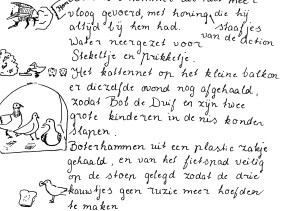 vloog gevoerd, met honing, die hij
altijd bij hem had. staafjes
Water neergezet voor van de action
Stekeltje en Prikkeltje.
Het kattennet op het kleine balkon
er diezelfde avond nog afgehaald,
zodat Bol de Duif en zijn twee
grote kinderen in de nis konden
slapen.
Boterhammen uit een plastic zakje
gehaald, en van het fietspad veilig
op de stoep gelegd zodat de drie
kauwtjes geen ruzie meer hoefden
te maken